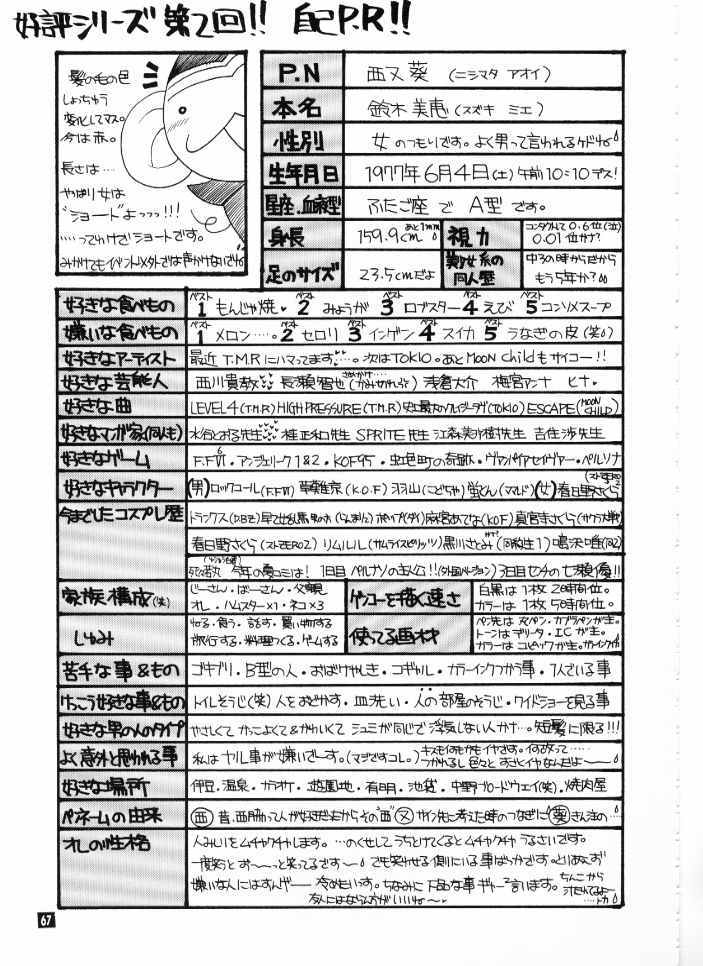 好評シリーズ第2回!! 自己P.R!!
髪の毛の色
しょっちゅう
変化してマス。
今は赤。
長さは…
やはり女は
"ショート"よっっっ!!!
……ってわけでショートです。
みかけてもイベント×外では声かけないでね
P.N 西又 葵 (ニシマタ アオイ)
本名 鈴木 美恵 (スズキ ミエ)
性別 女 のつもりです。よく男って言われるケドね
生年月日 1977年6月4日(土)午前10:10デス!
星座、血液型 ふたご座 で A型 です。
身長 159.9cm あと1mm
視力 コンタクトして0.6位(泣) 0.01位かな?
足のサイズ 23.5cmだよ
美少女系の同人歴 中3の時からだから もう5年か?
好きな食べもの ベスト1 もんじゃ焼 ベスト2 みょうが ベスト3 ロブスター ベスト4 えび ベスト5 コンソメスープ
嫌いな食べもの ベスト1 メロン…。ベスト2 セロリ ベスト3 インゲン ベスト4 スイカ ベスト5 うなぎの皮(笑)
好きなアーティスト 最近T.M.Rにハマってます…。次はTOKIO。あとMOON Childもサイコー!!
好きな芸能人 西川貴教 長瀬智也 浅倉大介 梅宮アンナ ヒナ
好きな曲 LEVEL4(T.M.R) HIGH PRESSURE(T.M.R) (TOKIO) ESCAPE(MOON CHILD)
好きなマンガ家(同人も) 水谷とおる先生 桂正和先生 SPRITE先生 江森美沙樹先生 吉住渉先生
好きなゲーム F.F Ⅵ・アンジェリーク1&2・KOF95・虹色町の奇跡・ヴァンパイアセイヴァー・ペルソナ
好きなキャラクター (男)ロックコール(F.FⅥ) 草薙京(K.O.F) 羽山(こどちゃ) (女)春日野さくら(ストZERO2)
今までしたコスプレ歴 トランクス(DBZ) 早乙女乱馬 男のみ(らんま½) 麻宮あてな(KOF) 真宮寺さくら(サクラ大戦)
春日野さくら(ストZERO2) リムルル(サムライスピリッツ) 黒川さとみ(同級生1) 鳴沢唯(同2)
今年の夏コミは! 1日目 ペルソナの主人公!! 3日目センチの七瀬優!!
家族構成(笑) じーさん・ばーさん・父・母親
オレ・ハムスター×1・ネコ×3
ゲンコーを描く速さ 白黒は1枚2時間位。
カラーは1枚5時間位。
しゅみ ねる・食う・話す・買い物する
旅行する・料理つくる・ゲームする
使ってる画材 ペン先は丸ペン・カブラペンが主。
トーンはデリータ・ICが主。
カラーはコピックが主。カラーインクも
苦手な事&もの ゴキブリ・B型の人・おばけやしき・コギャル・カラーインクつかう事・1人でいる事
けっこう好きな事&もの トイレそうじ(笑) 人をおどかす・皿洗い・人の部屋のそうじ・ワイドショーを見る事
好きな男の人のタイプ やさしくて かっこよくて&かわいくて シュミが同じで浮気しない人かナ…。短髪に限る!!!
よく意外と思われる事 私はヤル事が嫌いでーす。(マジですコレ。)
好きな場所 伊豆・温泉・カラオケ・遊園地・有明・池袋・中野ブロードウェイ(笑)・焼肉屋
ペンネームの由来 (西) 昔、西脇って人が好きだったからその"西" (又) サイン先に考えた時のつなぎに (葵)
オレの性格 人みしりをムチャクチャします。…のくせしてうちとけてくるとムチャクチャうるさいです。
一度笑うと お〜〜っと笑ってるです〜 でも笑わせる側にいる事ばっかです。とりあえず
嫌いな人にはすんげー 冷めもいっす。ちなみに下品な事ギャー2言います。
友人にはならんほうがいいね〜
67